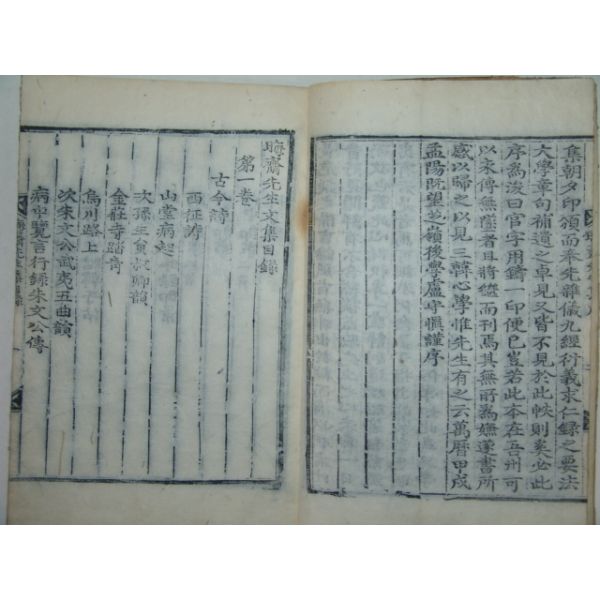 集朝夕印頒而奉先雜儀九經衍義求仁錄之要法
大學章句補遺之卓見又皆不見於此帙則奚必此
序爲浚曰官字用鑄一印便已豈若此本在吾州可
以永傳無墜者且將䄂而刊焉其無所爲嫌遂書所
感以歸之以見三韓心學惟先生有之云萬曆甲戌
孟陽旣望芝嶺後學盧守愼謹序
晦齋先生文集目錄
第一卷
古今詩
西征詩
山堂病起
次孫生員叔卿韻
金莊寺踏靑
烏川路上
次朱文公武夷五曲韻
病中覽言行錄朱文公傳